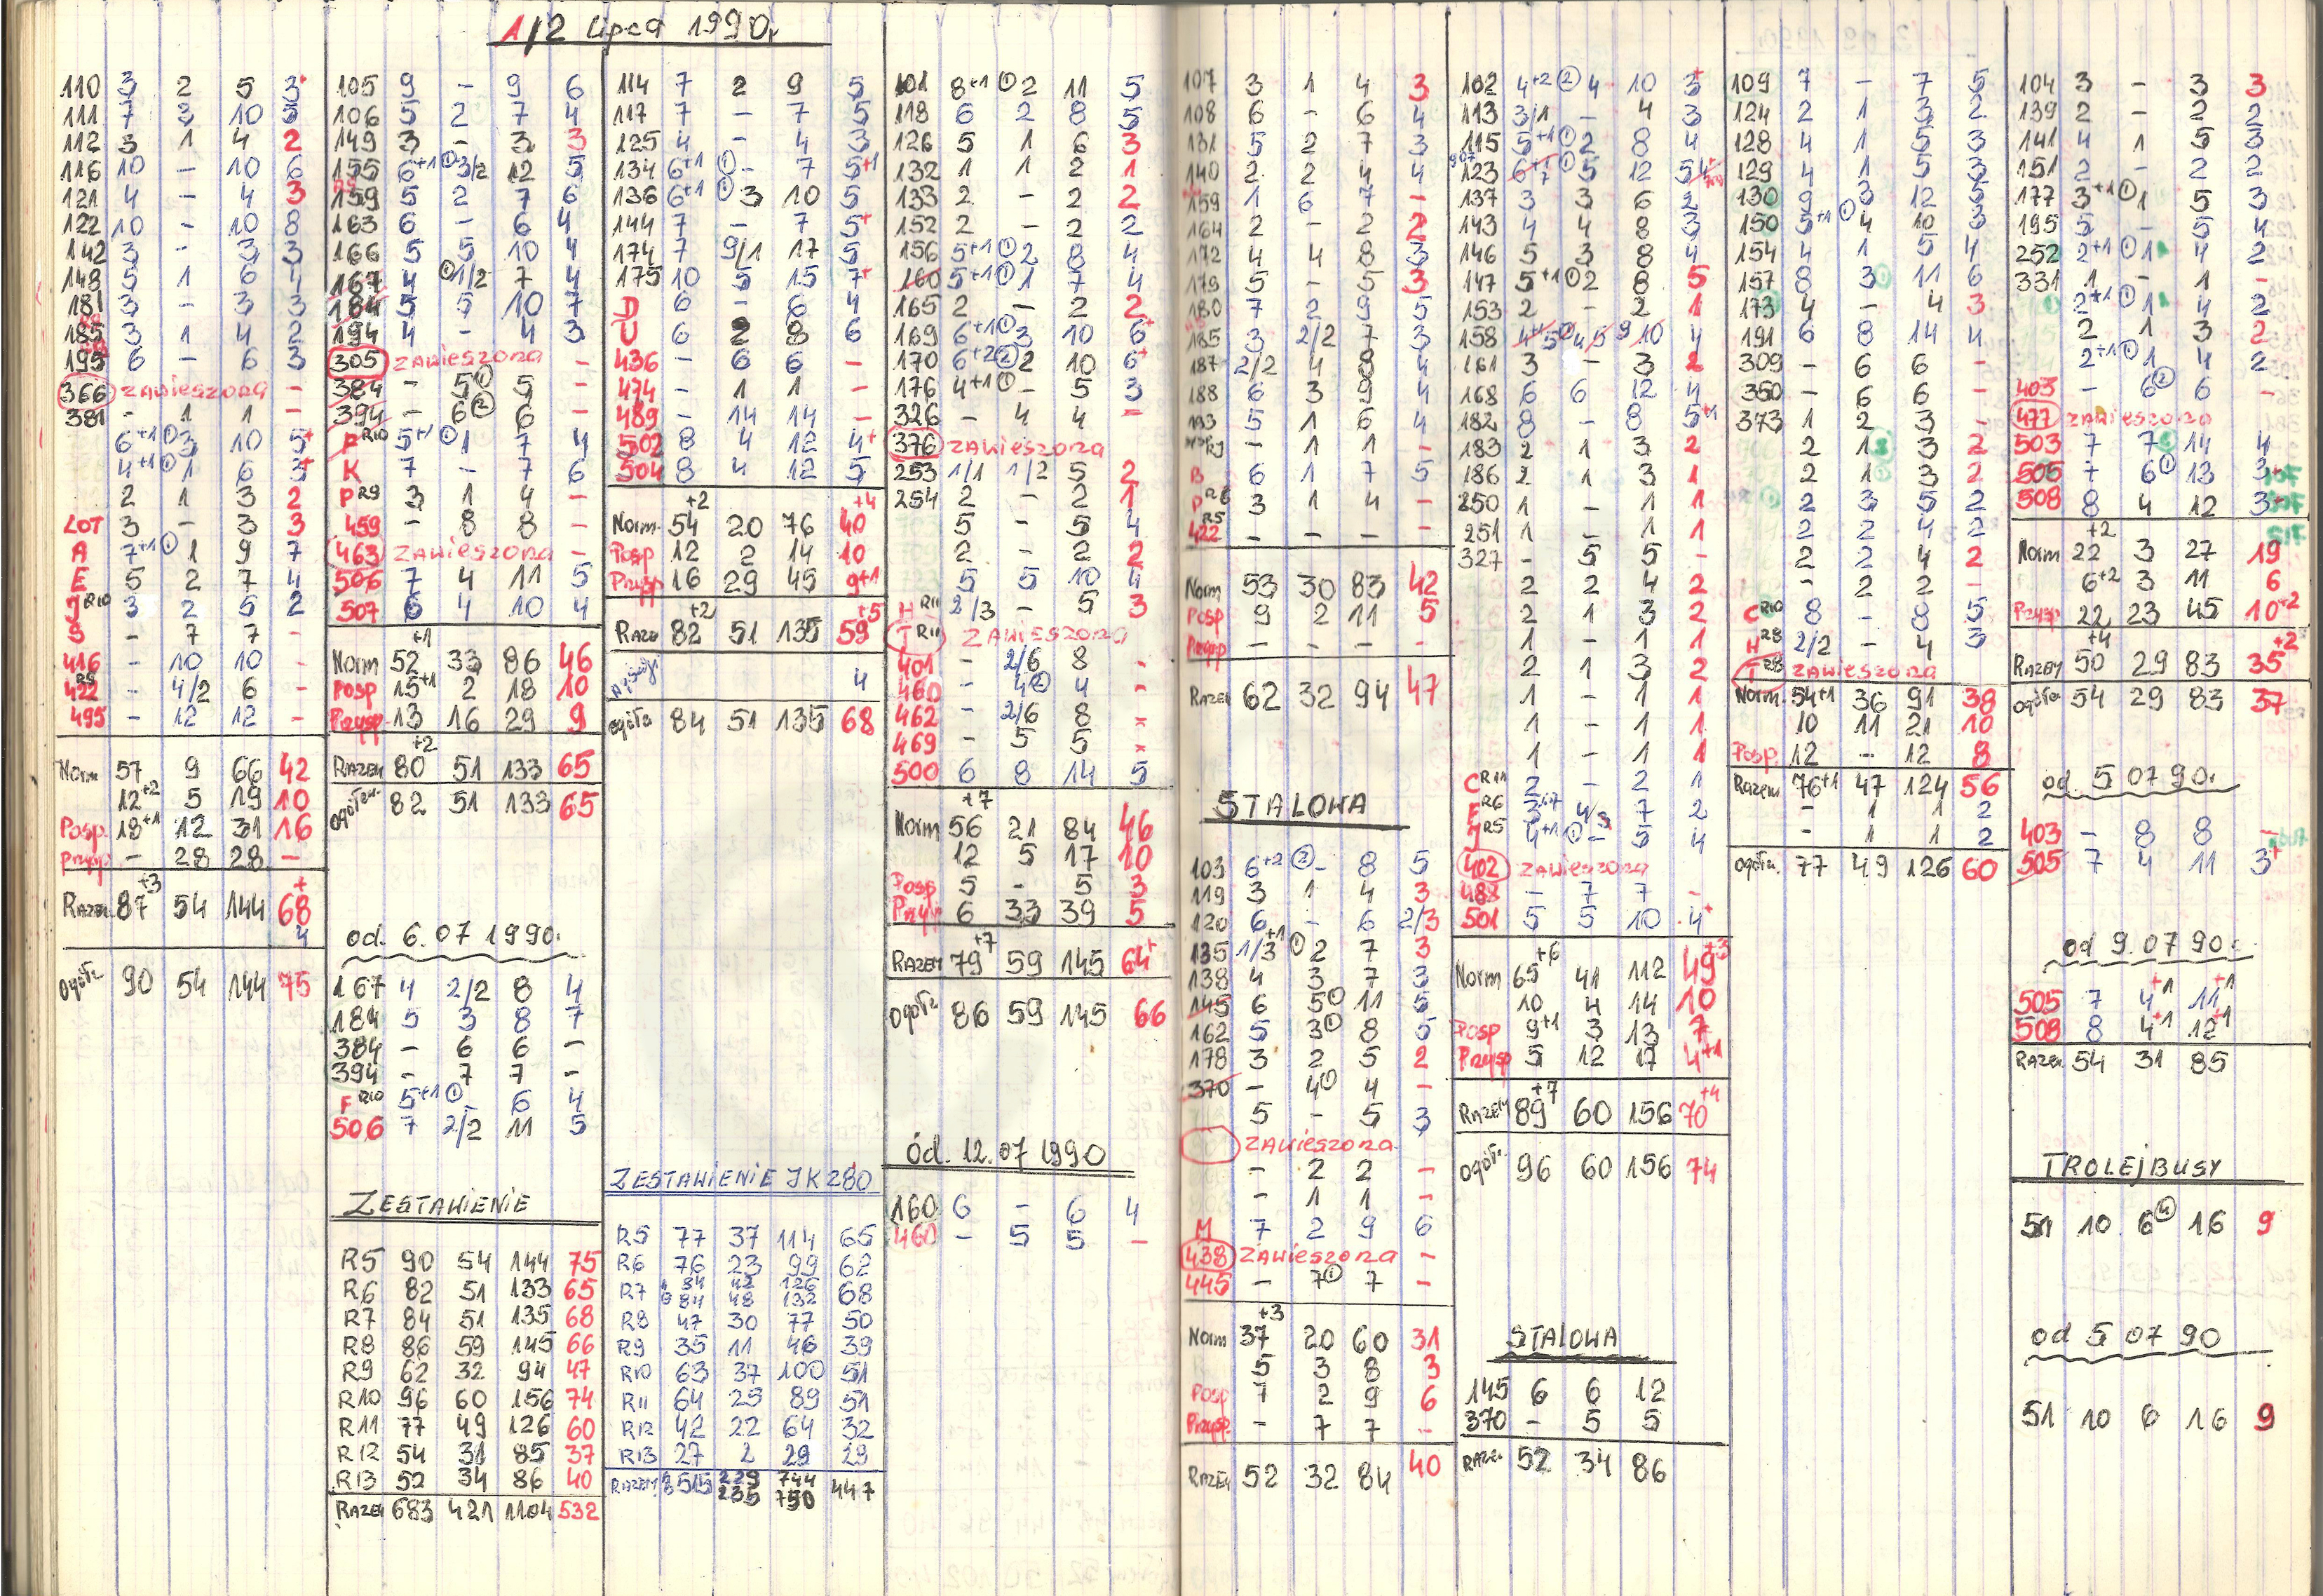 1/2 Lipca 1990r
110 3 2 5 3+
111 7 3 10 5
112 3 1 4 2
116 10 - 10 6
121 4 - 4 3
122 10 - 10 8
142 3 - 3 3
148 5 1 6
181 3 - 3 3
185 3 1 4 2
195 6 - 6 3
366 zawieszona -
381 - 1 1 -
6+1 (1) 3 10 5+
4+1 (1) 1 6 3+
2 1 3 2
LOT 3 - 3 3
A 7+1 (1) 1 9 7
E 5 2 7 4
J R10 3 2 5 2
S - 7 7 -
416 - 10 10 -
422 R9 - 4/2 6 -
495 - 12 12 -
Norm 57 9 66 42
12+2 5 19 10
Posp. 18+1 12 31 16
Przysp. - 28 28 -
Razem 87+3 54 144 68+
4
Ogółem 90 54 144 75
105 9 - 9 6
106 5 2 7 4
149 3 - 3 3
155 6+1 (1) 3/2 12 5
159 5 2 7 6
163 6 - 6 4
166 5 5 10 4
167 4 (1) 1/2 7 4
184 5 5 10 7
194 4 - 4 3
305 zawieszona -
384 - 5(1) 5 -
394 - 6(2) 6 -
F R10 5+1 (1) 1 7 4
K 7 - 7 6
P R9 3 1 4 -
459 - 8 8 -
463 zawieszona -
506 7 4 11 5
507 6 4 10 4
Norm 52+1 33 86 46
Posp 15+1 2 18 10
Przysp. 13 16 29 9
Razem 80+2 51 133 65
Ogółem 82 51 133 65
od. 6.07 1990r.
167 4 2/2 8 4
184 5 3 8 7
384 - 6 6 -
394 - 7 7 -
F R10 5+1 (1) - 6 4
506 7 2/2 11 5
ZESTAWIENIE
R5 90 54 144 75
R6 82 51 133 65
R7 84 51 135 68
R8 86 59 145 66
R9 62 32 94 47
R10 96 60 156 74
R11 77 49 126 60
R12 54 31 85 37
R13 52 34 86 40
Razem 683 421 1104 532
114 7 2 9 5
117 7 - 7 5
125 4 - 4 3
134 6+1 (1) - 7 5+1
136 6+1 (1) 3 10 5
144 7 - 7 5+
174 7 9/1 17 5
175 10 5 15 7+
D 6 - 6 4
U 6 2 8 6
436 - 6 6 -
474 - 1 1 -
489 - 14 14 -
502 8 4 12 4+
504 8 4 12 5
Norm. 54+2 20 76 40+4
Posp 12 2 14 10
Przysp 16 29 45 9+1
Razem 82+2 51 135 59+5
4
Ogółem 84 51 135 68
ZESTAWIENIE JK 280
R5 77 37 114 65
R6 76 23 99 62
R7 84 42 126 68
84 48 132
R8 47 30 77 50
R9 35 11 46 39
R10 63 37 100 51
R11 64 25 89 51
R12 42 22 64 32
R13 27 2 29 29
Razem 515 229 744 447
235 750
101 8+1 (1) 2 11 5
118 6 2 8 5
126 5 1 6 3
132 1 1 2 1
133 2 - 2 2
152 2 - 2 2
156 5+1 (1) 2 8 4
160 5+1 (1) 1 7 4
165 2 - 2 2
169 6+1 (1) 3 10 6+
170 6+2 (2) 2 10 6+
176 4+1 (1) - 5 3
326 - 4 4 -
376 zawieszona
253 1/1 1/2 5 2
254 2 - 2 1
5 - 5 4
2 - 2 2
5 5 10 4
H R11 2/3 - 5 3
T R11 zawieszona
401 - 2/6 8 -
460 - 4(2) 4 -
462 - 2/6 8 -
469 - 5 5 -
500 6 8 14 5
Norm 56+7 21 84 46
12 5 17 10
Posp 5 - 5 3
Przysp 6 33 39 5
Razem 79+7 59 145 64+
Ogółem 86 59 145 66
Od. 12.07 1990
160 6 - 6 4
460 - 5 5 -
107 3 1 4 3
108 6 - 6 4
131 5 2 7 3
140 2 2 4 4
159 1 6 7 -
164 2 - 2 2
172 4 4 8 3
179 5 - 5 3
180 7 2 9 5
185 3 2/2 7 3
187 2/2 4 8 4
188 6 3 9 4
193 5 1 6 4
- 1 1 -
B 6 1 7 5
P R6 3 1 4 -
422 R5 - - - -
Norm 53 30 83 42
Posp 9 2 11 5
Przysp - - - -
Razem 62 32 94 47
STALOWA
103 6+2 (2) - 8 5
119 3 1 4 3
120 6 - 6 2/3
135 1/3+1 (1) 2 7 3
138 4 3 7 3
145 6 5(1) 11 5
162 5 3(1) 8 5
178 3 2 5 2
370 - 4(1) 4 -
5 - 5 3
zawieszona
- 2 2 -
- 1 1 -
M 7 2 9 6
438 zawieszona -
445 - 7(1) 7 -
Norm 37+3 20 60 31
5 3 8 3
Posp 7 2 9 6
Przysp. - 7 7 -
Razem 52 32 84 40
102 4+2 (2) 4 10 3+
113 3/1 - 4 3
115 5+1 (1) 2 8 4
123 6+1 (1) 5 12 5
137 3 3 6 2
143 4 4 8 3
146 5 3 8 4
147 5+1 (1) 2 8 5
153 2 - 2 1
158 4+1 5 10 4
161 3 - 3 2
168 6 6 12 4
182 8 - 8 5+1
183 2 1 3 2
186 2 1 3 1
250 1 - 1 1
251 1 - 1 1
327 - 5 5 -
2 2 4 2
2 1 3 2
1 - 1 1
2 1 3 2
1 - 1 1
1 - 1 1
1 - 1 1
C R11 2 - 2 1
E R6 3 4 7 2
J R5 4+1 (1) - 5 4
402 zawieszona
488 - 7 7 -
501 5 5 10 4+
Norm 65+6 41 112 49+3
10 4 14 10
Posp 9+1 3 13 7
Przysp 5 12 17 4+1
Razem 89+7 60 156 70+4
Ogółem 96 60 156 74
STALOWA
145 6 6 12
370 - 5 5
Razem 52 34 86
109 7 - 7 5
124 2 1 3 2
128 4 1 5 3
129 4 1 5 3
130 9 3 12 5
150 5+1 (1) 4 10 3
154 4 1 5 4
157 8 3 11 6
173 4 - 4 3
191 6 8 14 4
309 - 6 6 -
350 - 6 6 -
373 1 2 3 -
2 1 3 2
2 1 3 2
2 3 5 2
2 2 4 2
2 2 4 2
- 2 2 -
C R10 8 - 8 5
H R8 2/2 - 4 3
T R8 zawieszona
Norm. 54+1 36 91 38
10 11 21 10
Posp. 12 - 12 8
Razem 76+1 47 124 56
- 1 1 2
- 1 1 2
Ogółem. 77 49 126 60
104 3 - 3 3
139 2 - 2 2
141 4 1 5 3
151 2 - 2 2
177 3+1 (1) 1 5 3
195 5 - 5 4
252 2+1 (1) 1 4 2
331 1 - 1 -
2+1 (1) 1 4 2
2 1 3 2
2+1 (1) 1 4 2
403 - 6(2) 6 -
477 zawieszona
503 7 7 14 4
505 7 6(1) 13 3+
508 8 4 12 3+
Norm 22+2 3 27 19
6+2 3 11 6
Przysp 22 23 45 10+2
Razem 50+4 29 83 35+2
Ogółem 54 29 83 37
od. 5 07 90r.
403 - 8 8 -
505 7 4 11 3+
od 9.07 90r.
505 7 4+1 11+1
508 8 4+1 12+1
Razem 54 31 85
TROLEJBUSY
51 10 6(4) 16 9
od 5 07 90
51 10 6 16 9